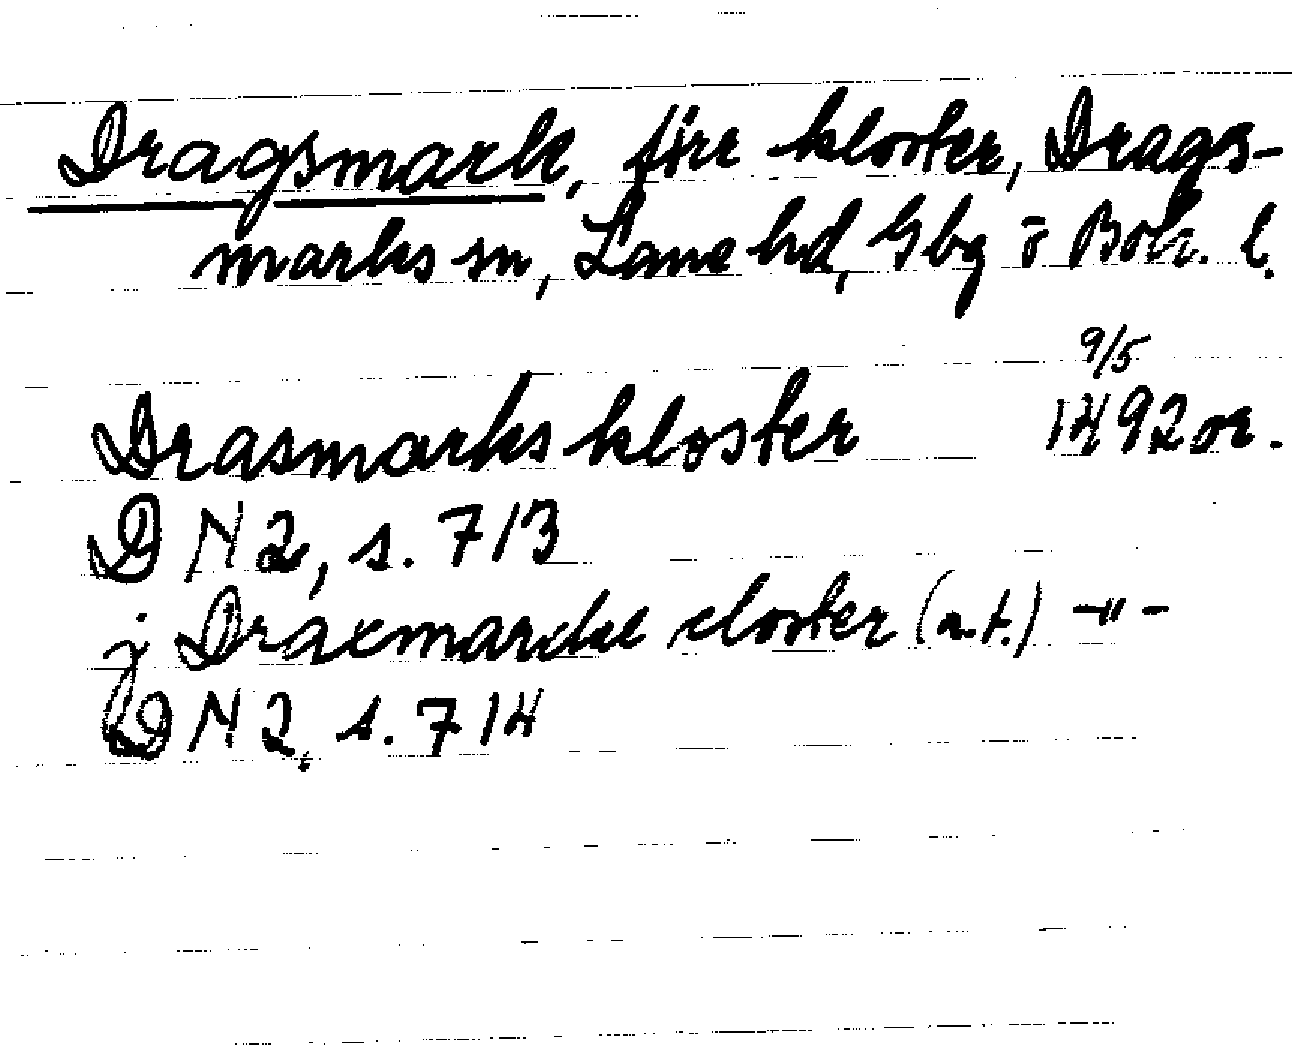 Dragsmark, förr kloster, Drags-
marks sn, Lane hd, Gbg o Boh. l.
9/5
Drasmarks kloster 1492 or.
DN 2, s. 713
j Draxmarcke closter (a.t.) -"-
DN 2, s. 714